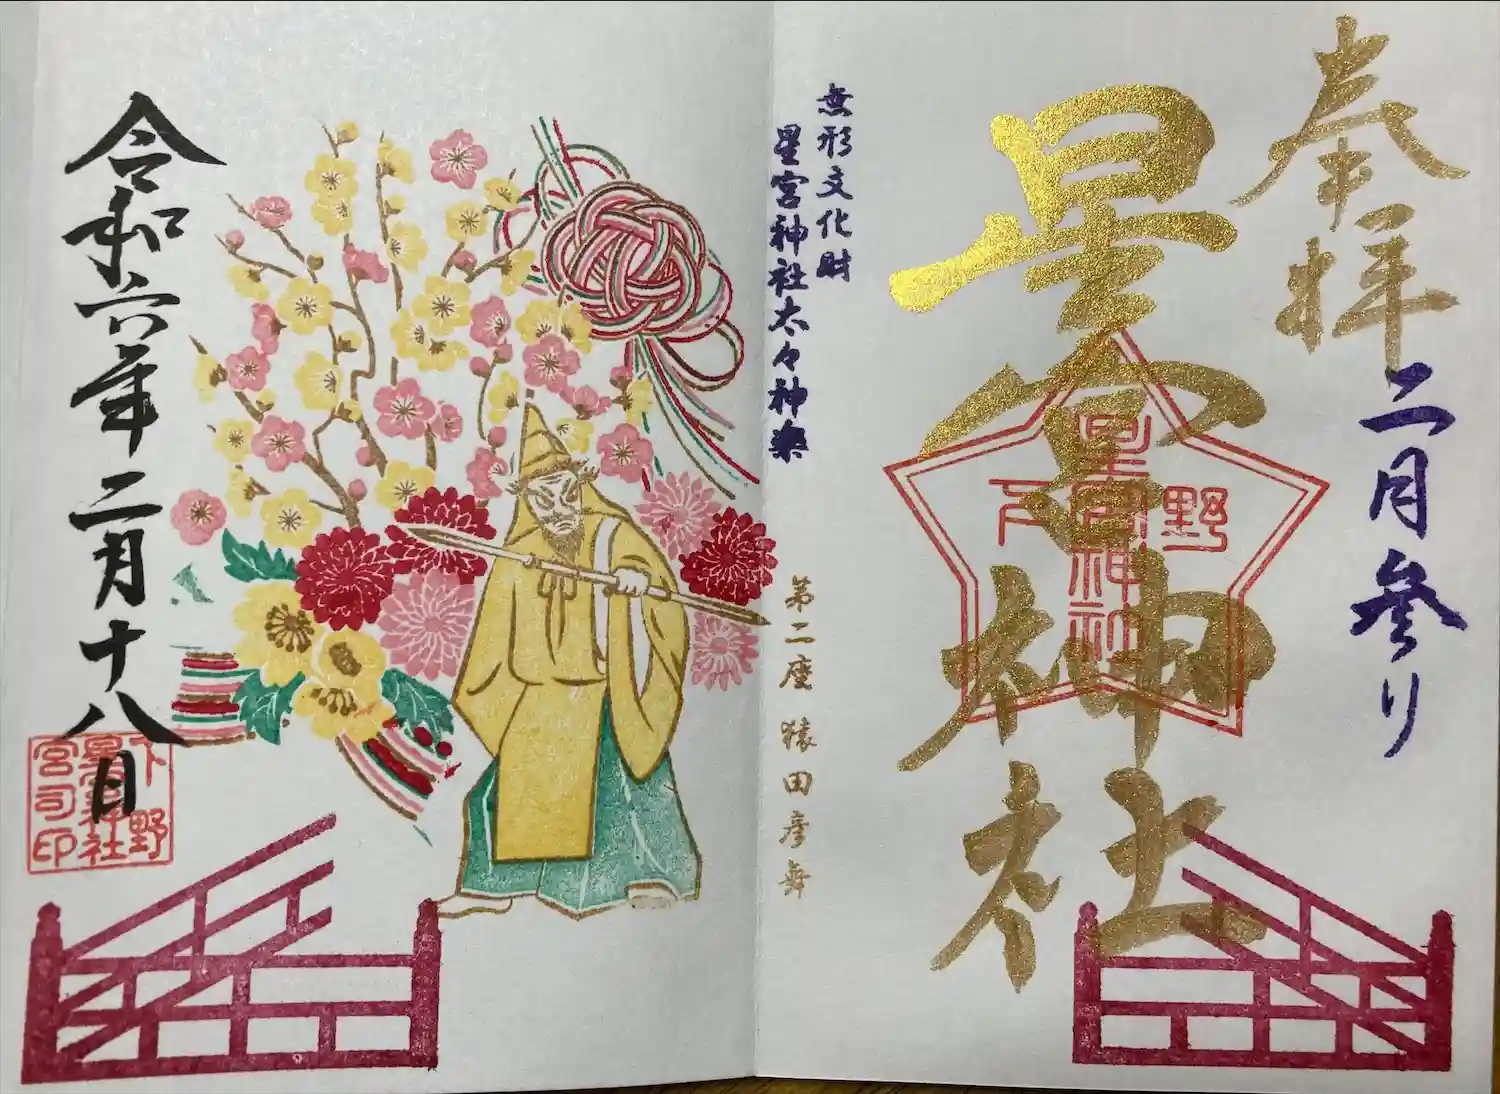 奉拝
二月参り
星宮神社
下野
星宮神社
無形文化財
星宮神社太々神楽
第二座 猿田彦舞
令和六年二月十八日
下野
星宮神社
宮司印